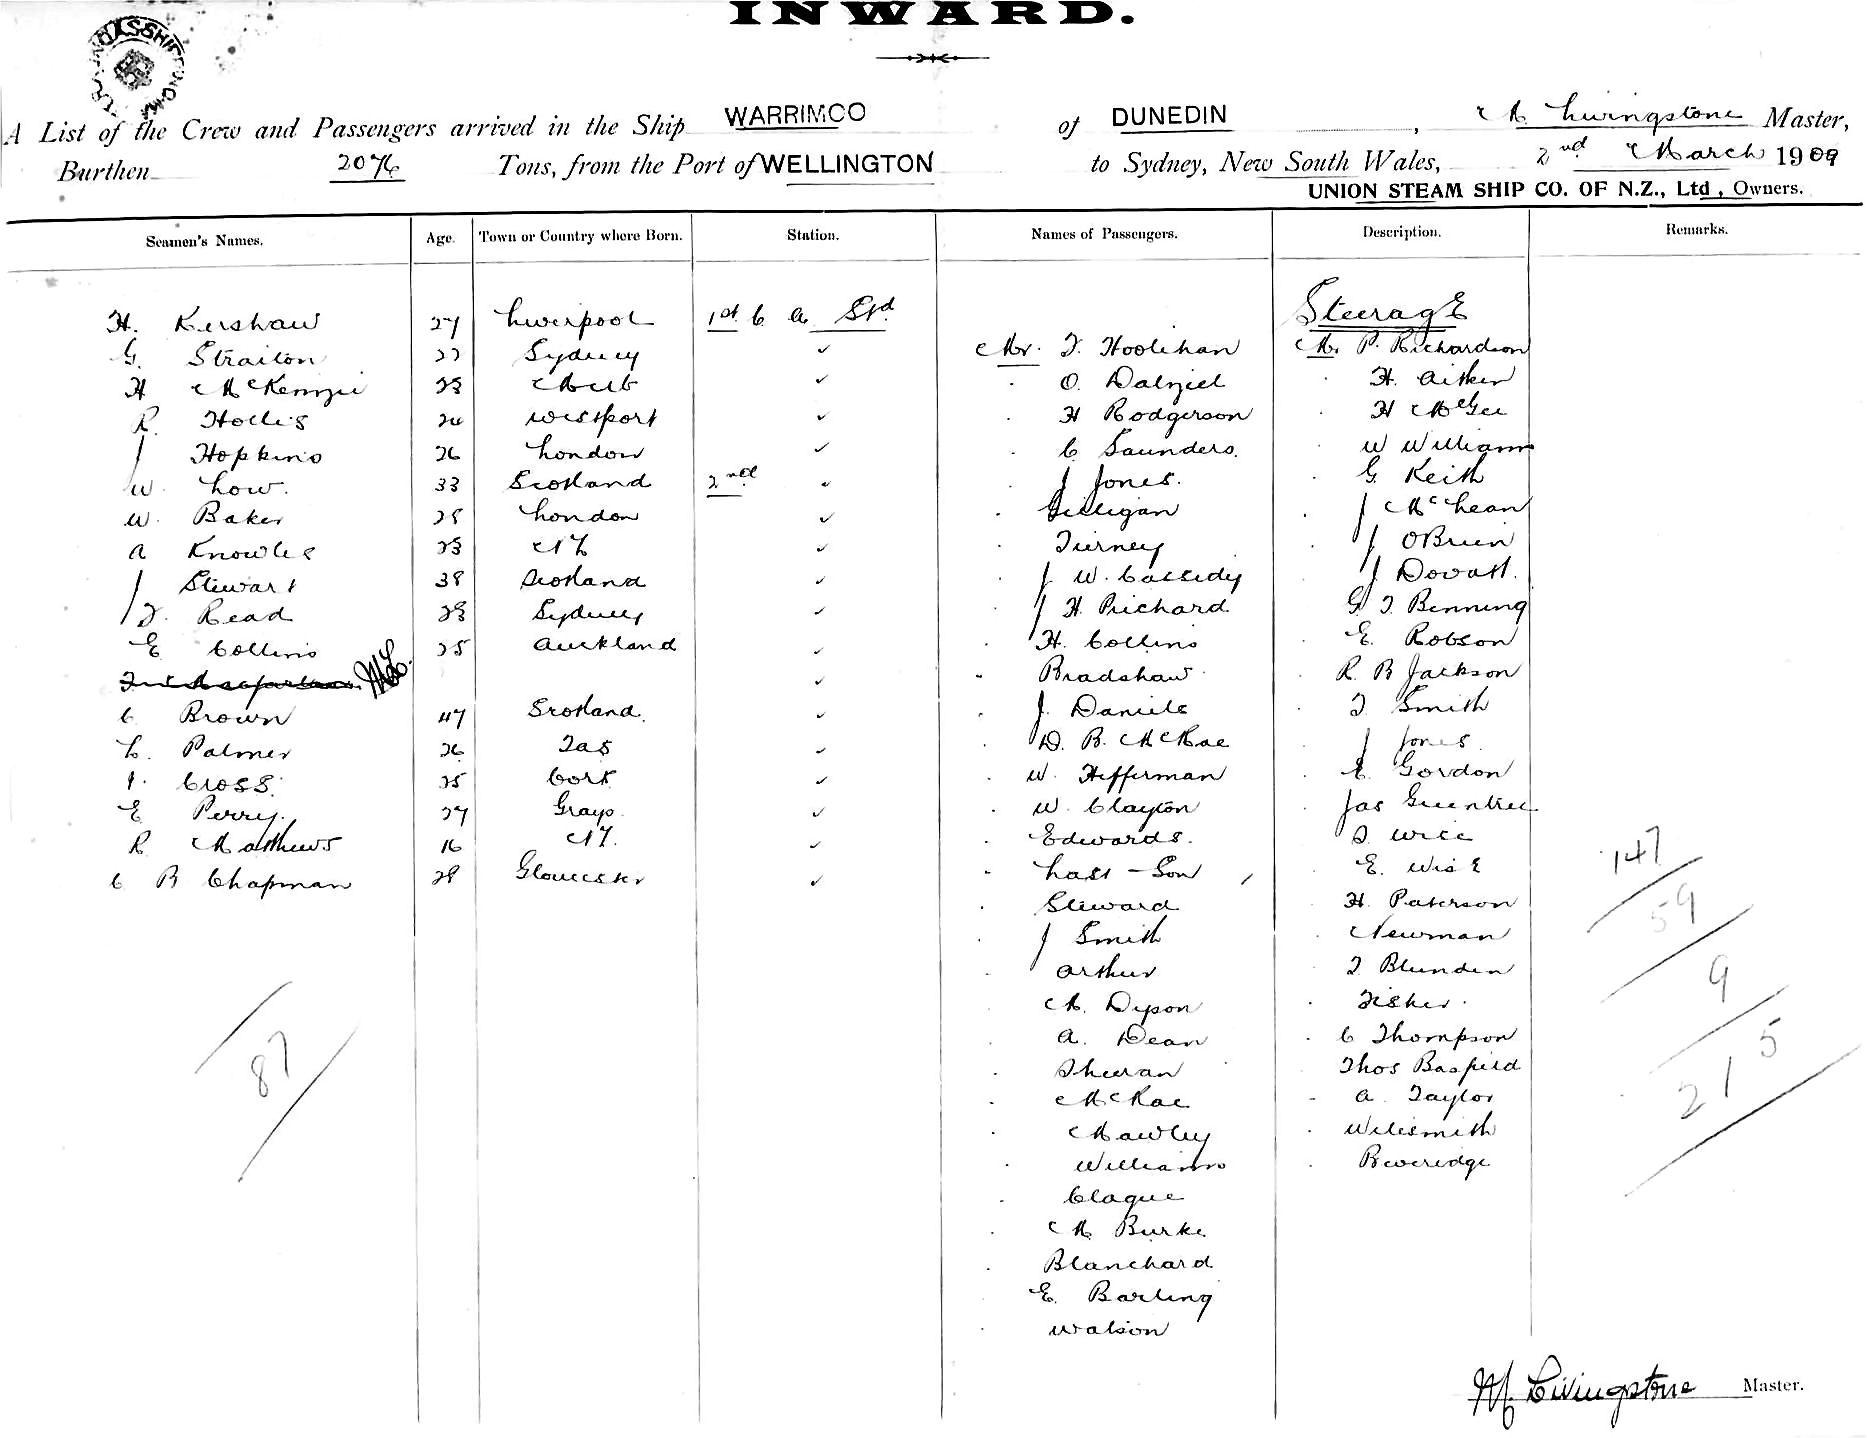 INWARD.
A List of the Crew and Passengers arrived in the Ship WARRIMCO of DUNEDIN, M Livingstone Master,
Burthen 2076 Tons, from the Port of WELLINGTON to Sydney, New South Wales, 2nd March 1909
UNION STEAM SHIP CO. OF N.Z., Ltd, Owners.
Seamen's Names. Age. Town or Country where Born. Station. Names of Passengers. Description. Remarks.
H. Kershaw 27 Liverpool 1st C a Std
Steerage
G. Straiton 27 Sydney Mr. T. Hoolihan Mr P. Richardson
H McKenzie 23 Melb O. Dalziel H. Aitken
R. Hollis 24 Westport H Rodgerson H McGee
J Hopkins 26 London C. Saunders. W Williams
W. Low. 33 Scotland 2nd J Jones. G. Keith
W. Baker 28 London Gilligan J McLean
A Knowles 23 NZ Tierney J OBrien
J Stewart 38 Scotland J W. Cassidy J Dovatt.
J T. Read 23 Sydney J H. Prichard G T Benning
E Collins 25 Auckland H. Collins E. Robson
Bradshaw R B Jackson
C. Brown 47 Scotland. J. Daniels T Smith
L. Palmer 26 Tas D. B. McRae J Jones
J. Cross. 25 Cork W. Hefferman E. Gordon
E Perry. 27 Grays W. Clayton Jas Greentree
R Matthews 16 NZ. Edwards. D Wise
C R Chapman 28 Gloucester Last - Son E. Wise
Steward H. Paterson
J Smith Newman
Arthur T Blunden
M. Dyson Fisher.
A. Dean C Thompson
Sheeran Thos Basfield
McRae A Taylor
Mawley Wilesmith
Williams Beveridge
Clague
M Burke
Blanchard
E. Barling
Watson
147
59
9
5
21
87
M Livingstone Master.